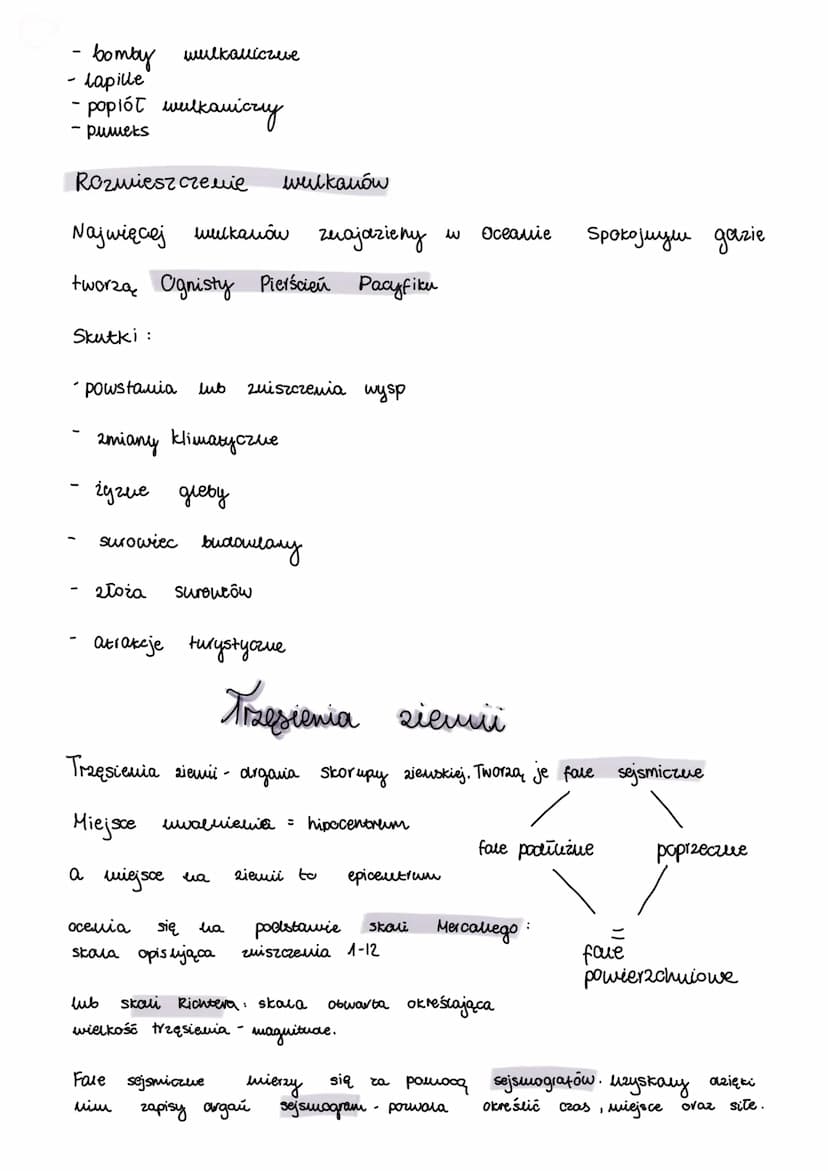 - bomby wulkaniczne
- lapille
- popiół wulkaniczny
- pumeks
Rozmieszczenie wulkanów
Najwięcej wulkanów znajdziemy w Oceanie Spokojnym gdzie
tworzą Ognisty Pierścień Pacyfiku
Skutki :
- powstania lub zniszczenia wysp
- zmiany klimatyczne
- żyzne gleby
- surowiec budowlany
- złoża surowców
- atrakcje turystyczne
Trzęsienia ziemii
Trzęsienia ziemii - drgania skorupy ziemskiej. Tworzą je fale sejsmiczne
Miejsce uwalnienia = hipocentrum
fale podłużne poprzeczne
a miejsce na ziemii to epicentrum
ocenia się na podstawie skali Mercaliego :
skala opisująca zniszczenia 1-12
=
fale
powierzchniowe
lub skali Richtera: skala otwarta określająca
wielkość trzęsienia - magnitude.
Fale sejsmiczne mierzy się za pomocą sejsmografów. Uzyskany dzięki
nim zapisy drgań sejsmogram - pozwala określić czas, miejsce oraz siłe.